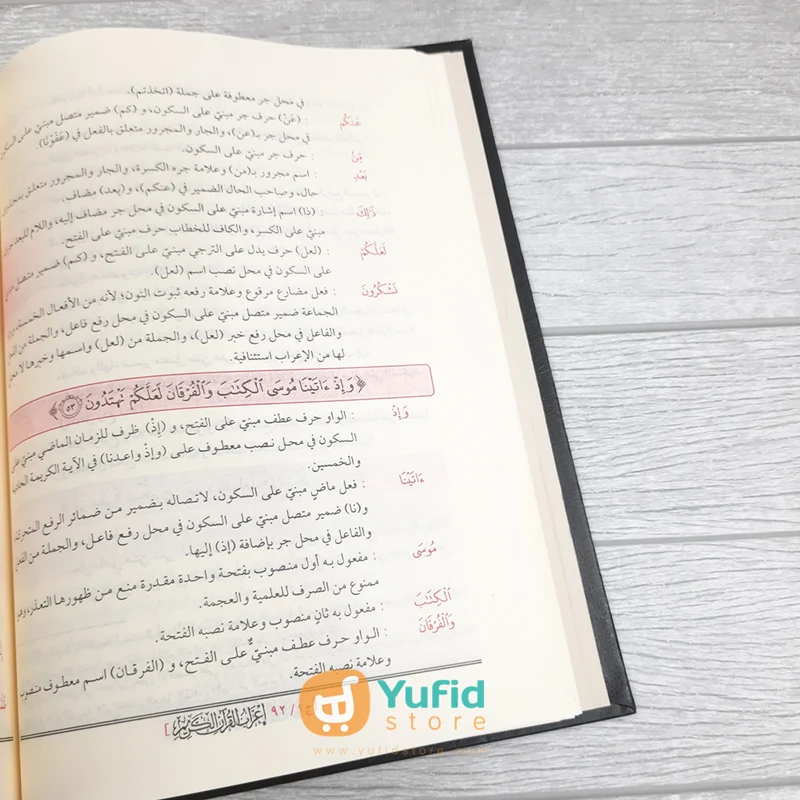 في محل جر معطوفة على جملة (اتخذتم).
عَنكُم : (عَنْ) حرف جر مبنيّ على السكون، و (كم) ضمير متصل مبنيّ على السكون
في محل جر بـ(عن)، والجار والمجرور متعلق بالفعل في (عَفَوْنَا).
مِّنْ : حرف جر مبنيّ على السكون.
بَعْدِ : اسم مجرور بـ(من) وعلامة جره الكسرة، والجار والمجرور متعلق
حال، وصاحب الحال الضمير في (عنكم)، و(بعد) مضاف.
ذَٰلِكَ : (ذا) اسم إشارة مبنيّ على السكون في محل جر مضاف إليه، واللام للبعد
مبنيّ على الكسر، والكاف للخطاب حرف مبنيّ على الفتح.
لَعَلَّكُمْ : (لعل) حرف يدل على الترجي مبنيّ على الفتح، و (كـم) ضمير متصل
على السكون في محل نصب اسم (لعل).
تَشْكُرُونَ : فعل مضارع مرفوع وعلامة رفعه ثبوت النون؛ لأنه من الأفعال الخمسة،
الجماعة ضمير متصل مبنيّ على السكون في محل رفع فاعل، والجملة من
والفاعل في محل رفع خبر (لعل)، والجملة من (لعل) واسمها وخبرها لا
لها من الإعراب استئنافية.
﴿ وَإِذْ ءَاتَيْنَا مُوسَى ٱلْكِتَٰبَ وَٱلْفُرْقَانَ لَعَلَّكُمْ تَهْتَدُونَ ٥٣ ﴾
وَإِذْ : الواو حرف عطف مبنيّ على الفتح، و (إِذْ) ظرف للزمان الماضي مبنيّ على
السكون في محل نصب معطوف على (وإذ واعدنا) في الآية الكريمة
والخمسين.
ءَاتَيْنَا : فعل ماضٍ مبنيّ على السكون، لاتصاله بضمير من ضمائر الرفع المتحركة
و(نا) ضمير متصل مبنيّ على السكون في محل رفع فاعل، والجملة من الفعل
والفاعل في محل جر بإضافة (إذ) إليها.
مُوسَى : مفعول به أول منصوب بفتحة واحدة مقدرة منع من ظهورها التعذر، وهو
ممنوع من الصرف للعلمية والعجمة.
ٱلْكِتَٰبَ : مفعول به ثانٍ منصوب وعلامة نصبه الفتحة.
وَٱلْفُرْقَانَ : الواو حرف عطف مبنيّ على الفتح، و (الفرقان) اسم معطوف منصوب
وعلامة نصبه الفتحة.
ج١ / ٩٢ إعراب القرآن الكريم ]
Yufid
store
www.yufidstore.com